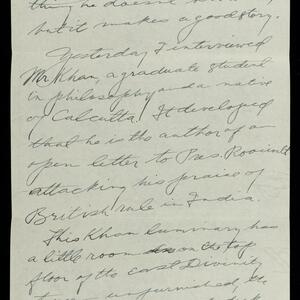 thing he doesn't
but it makes a good story.
Yesterday I interviewed
Mr. Khan, a graduate student
in philosophy and a native
of Calcutta. It developed
that he is the author of an
open letter to Pres. Roosevelt
attacking his praise of
British rule in India.
This Khan
a little room on the top
floor of the east Divinity
unfurnished, the